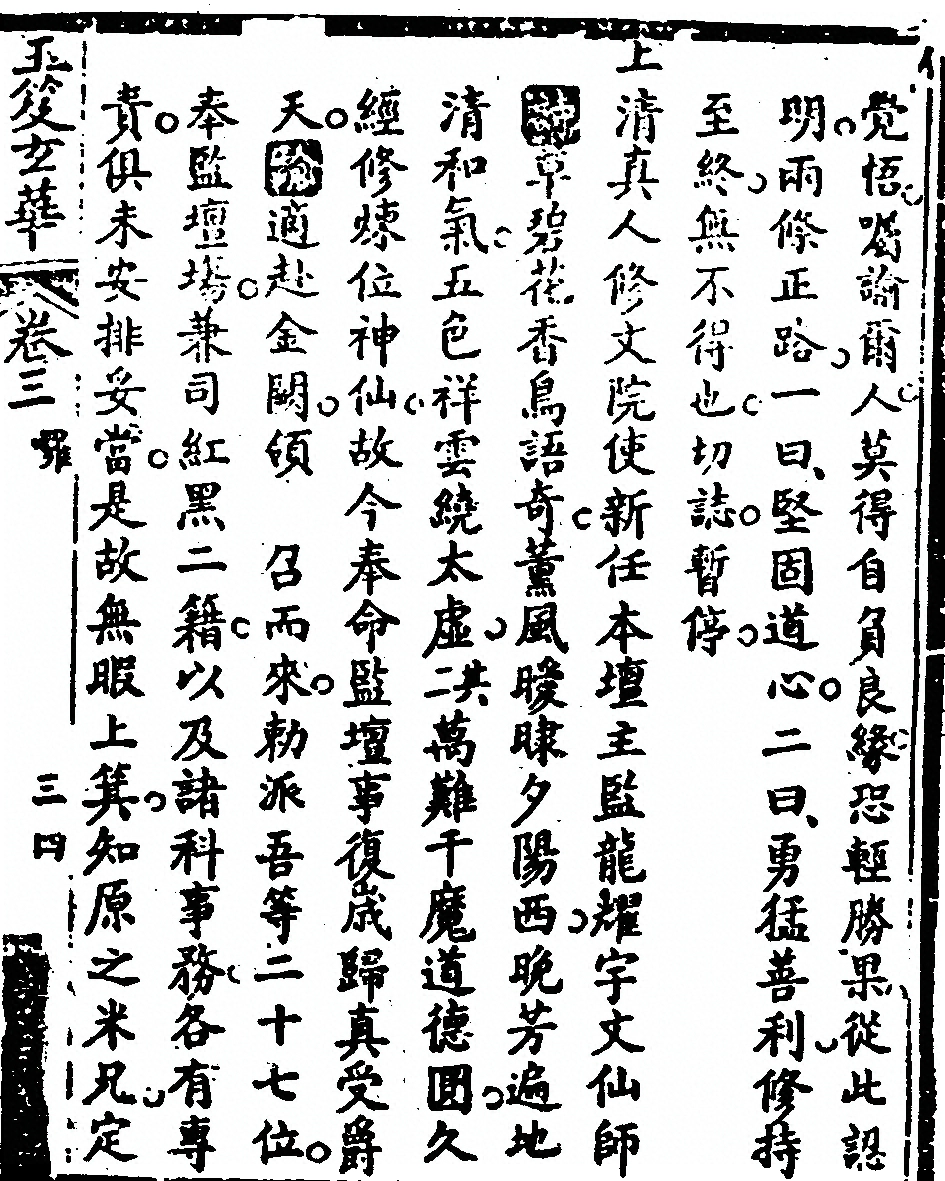 覺悟囑諭爾人莫得自負良緣恐輕勝果從此認
明兩條正路一曰、堅固道心二曰、勇猛善利修持
至終無不得也切誌暫停
上清真人修文院使新任本壇主監龍耀宇文仙師
草碧花香鳥語奇薰風曖㬣夕陽西晚芳遍地
清和氣五色祥雲繞太虛其二萬難千魔道德圓久
經修煉位神仙故今奉命監壇事復歲歸真受爵
天適赴金闕領 召而來勅派吾等二十七位
奉監壇場兼司紅黑二籍以及諸科事務各有專
責俱未安排妥當是故無暇上箕知原之米兄定
玉笈玄華
卷三
三四